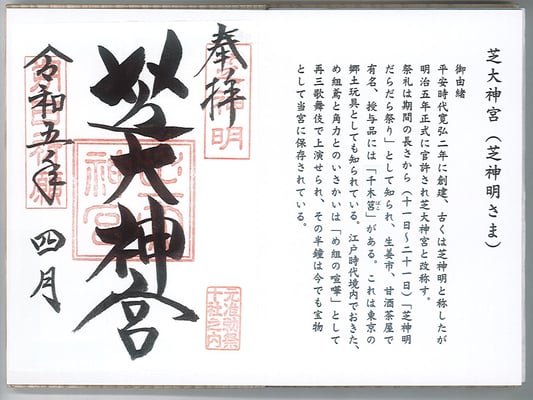 芝大神宮（芝神明さま）
御由緒
平安時代寛弘二年に創建、古くは芝神明と称したが
明治五年正式に官許され芝大神宮と改称す。
祭礼は期間の長さから（十一日～二十一日）「芝神明
だらだら祭り」として知られ、生姜市、甘酒茶屋で
有名、授与品には「千木筥」がある。これは東京の
郷土玩具としても知られている。江戸時代境内でおきた、
め組鳶と角力とのいさかいは「め組の喧嘩」として
再三歌舞伎で上演せられ、その半鐘は今でも宝物
として当宮に保存されている。
奉拝
芝大神宮
元准勅祭
十社之内
令和五年
四月